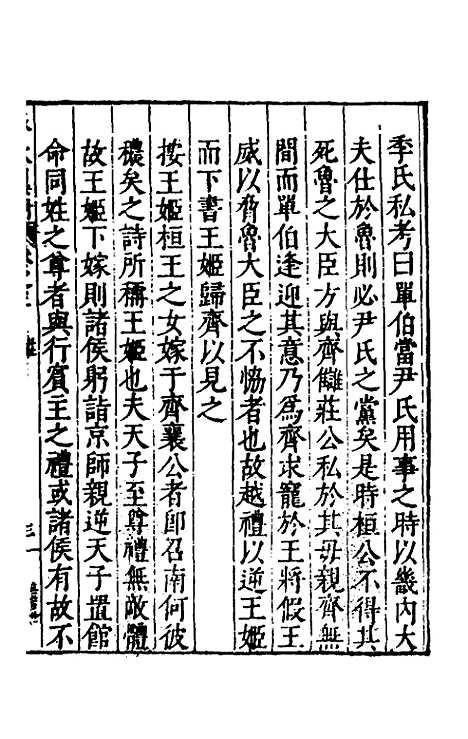 季氏私考曰單伯當尹氏用事之時以畿內大
夫仕於魯則必尹氏之黨矣是時桓公不得其
死魯之大臣方與齊讎莊公私於其母親齊無
間而單伯逢迎其意乃爲齊求寵於王將假王
威以脅魯大臣之不恊者也故越禮以逆王姬
而下書王姬歸齊以見之
按王姬桓王之女嫁于齊襄公者卽召南何彼
穠矣之詩所稱王姬也夫天子至尊禮無敵體
故王姬下嫁則諸侯躬詣京師親逆天子置館
命同姓之尊者與行賓主之禮或諸侯有故不